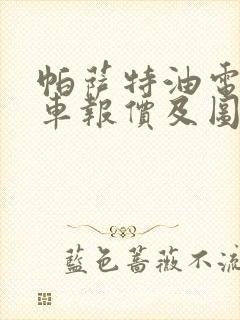 帕薩特油電
車報價及圖
藍色薔薇不流